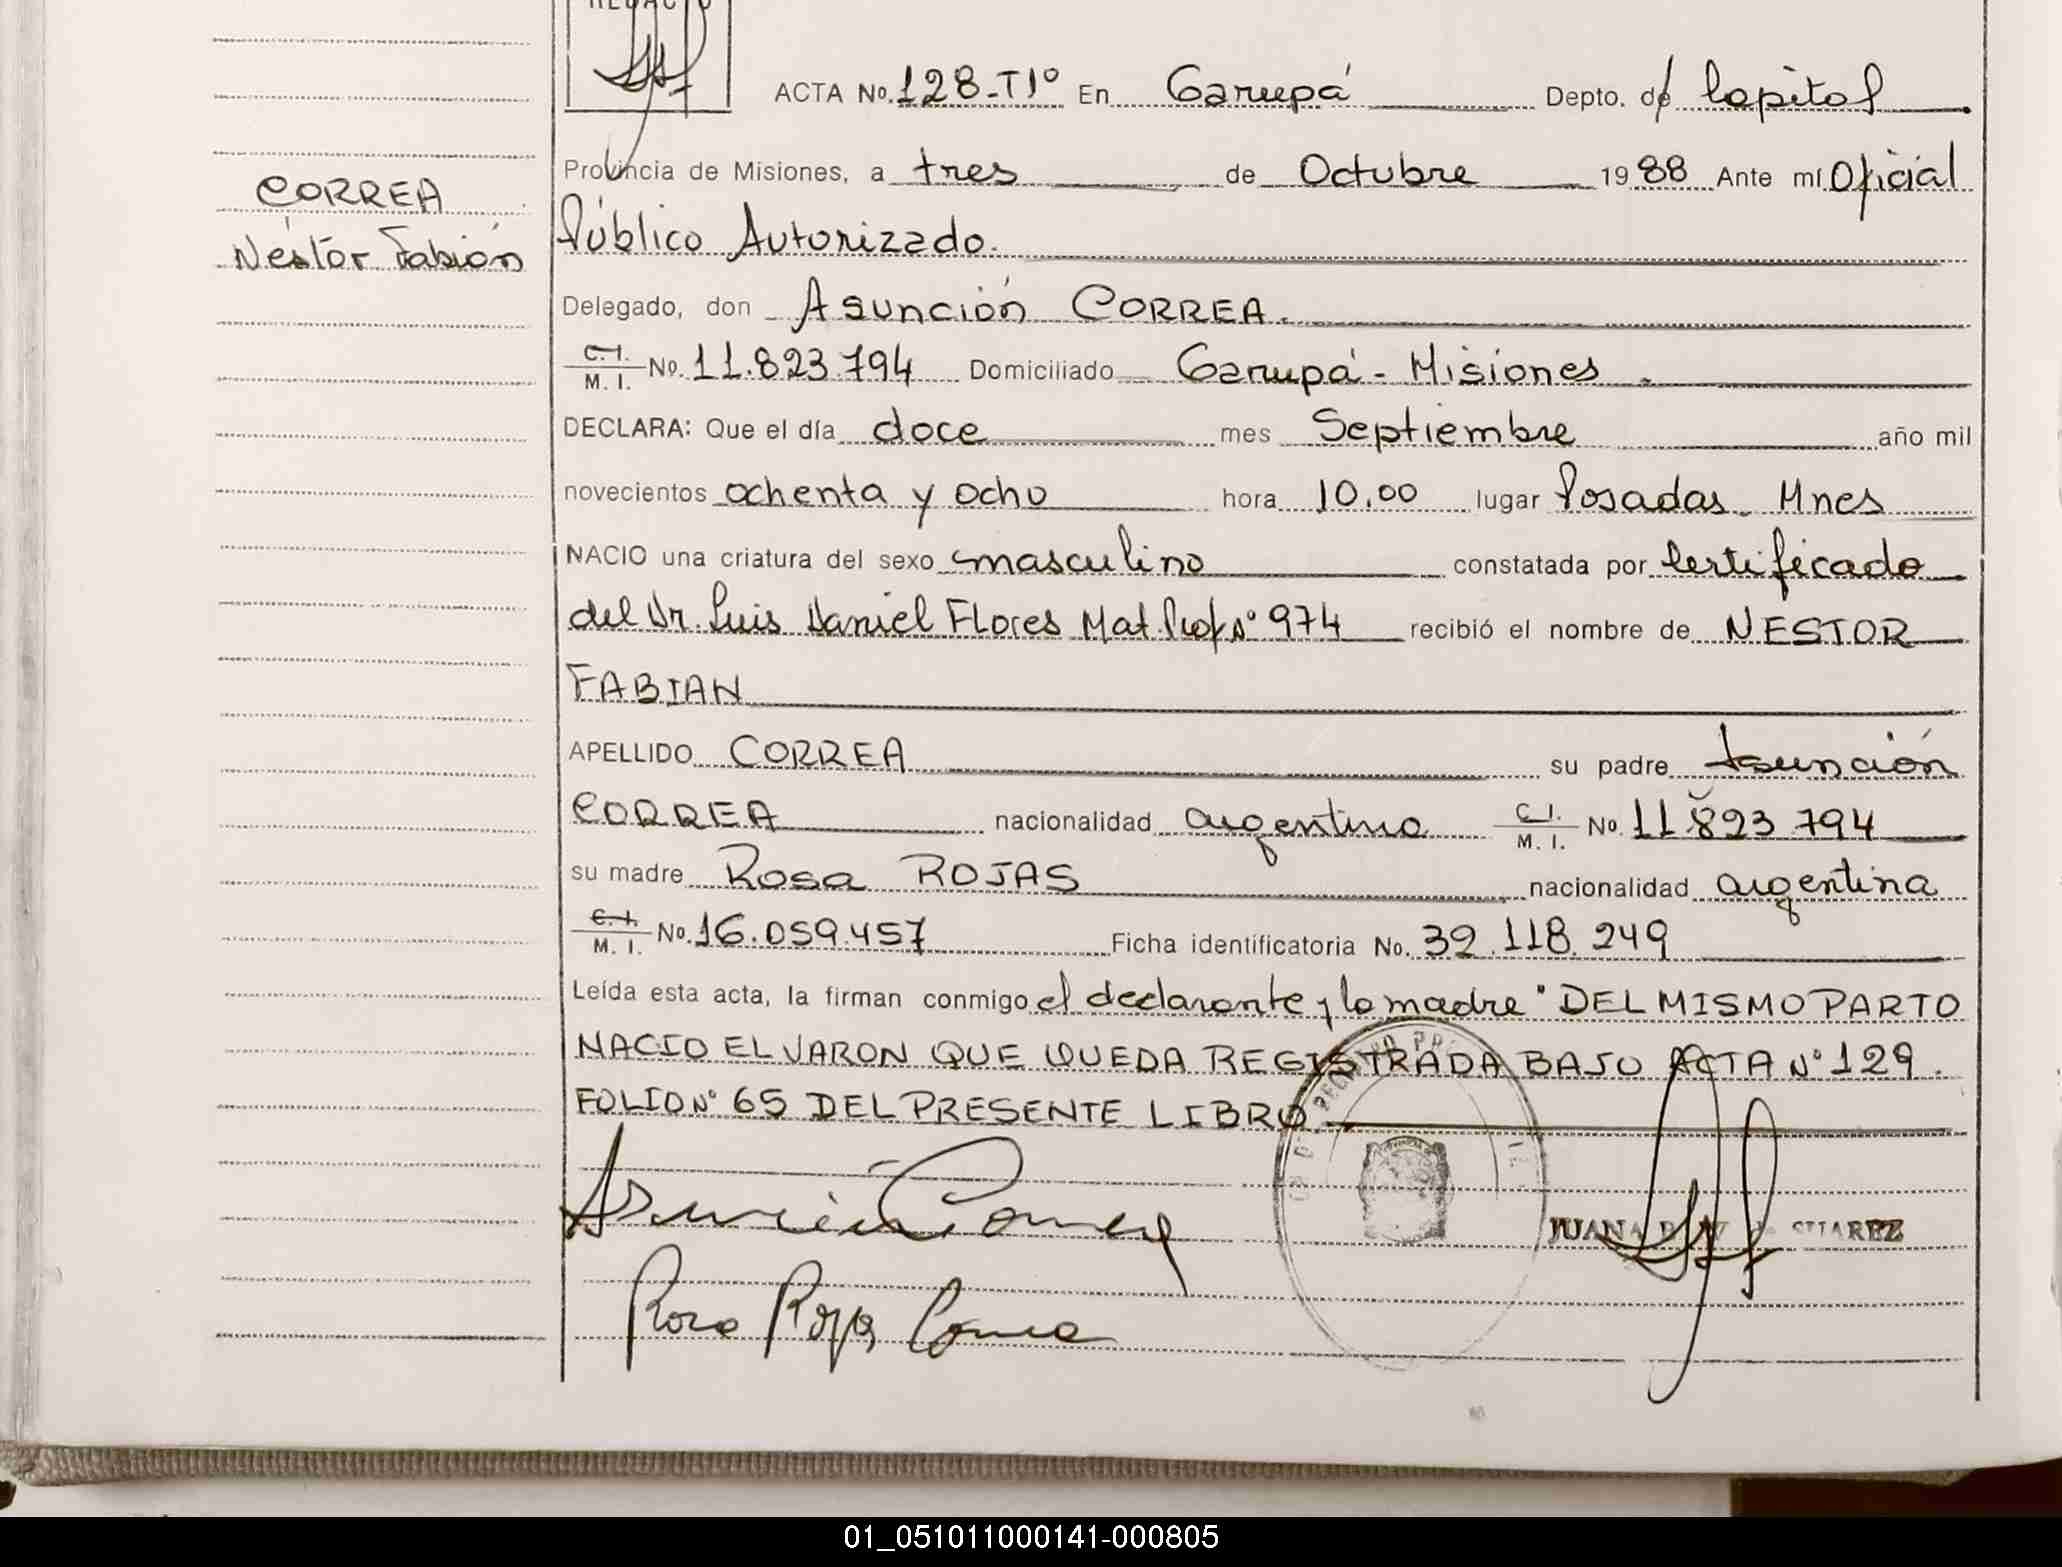 REDACTO
ACTA No. 128-TIº En Garupá Depto. de Capital
CORREA
Néstor Fabián
Provincia de Misiones, a tres de Octubre 1988 Ante mí Oficial
Público Autorizado.
Delegado, don Asunción CORREA.
C.I. M.I. No. 11.823.794 Domiciliado Garupá - Misiones.
DECLARA: Que el día doce mes Septiembre año mil
novecientos ochenta y ocho hora 10,00 lugar Posadas - Mnes
NACIO una criatura del sexo masculino constatada por Certificado
del Dr. Luis Daniel Flores Mat. Prof. Nº 974 recibió el nombre de NESTOR
FABIAN
APELLIDO CORREA su padre Asunción
CORREA nacionalidad argentino C.I. M.I. No. 11.823.794
su madre Rosa ROJAS nacionalidad argentina
C.I. M.I. No. 16.059.457 Ficha identificatoria No. 32.118.249
Leída esta acta, la firman conmigo el declarante y la madre "DEL MISMO PARTO
NACIO EL VARON QUE QUEDA REGISTRADA BAJO ACTA Nº 129.
FOLIO Nº 65 DEL PRESENTE LIBRO.
Asunción Correa
JUANA SUAREZ
Rosa Rojas Correa
01_051011000141-000805